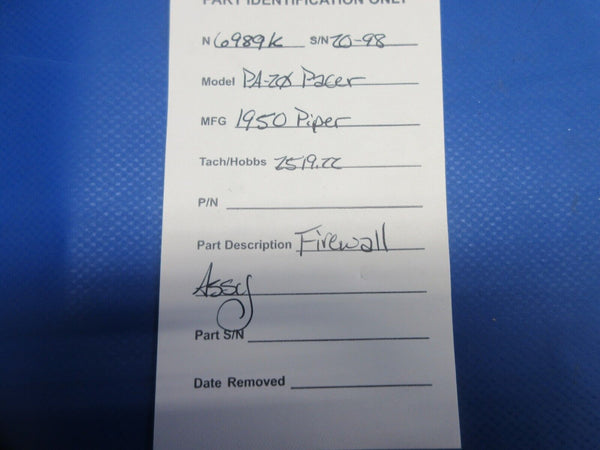 PART IDENTIFICATION ONLY
N 6989K S/N 20-98
Model PA-20 Pacer
MFG 1950 Piper
Tach/Hobbs 2519.22
P/N
Part Description Firewall
Assy
Part S/N
Date Removed